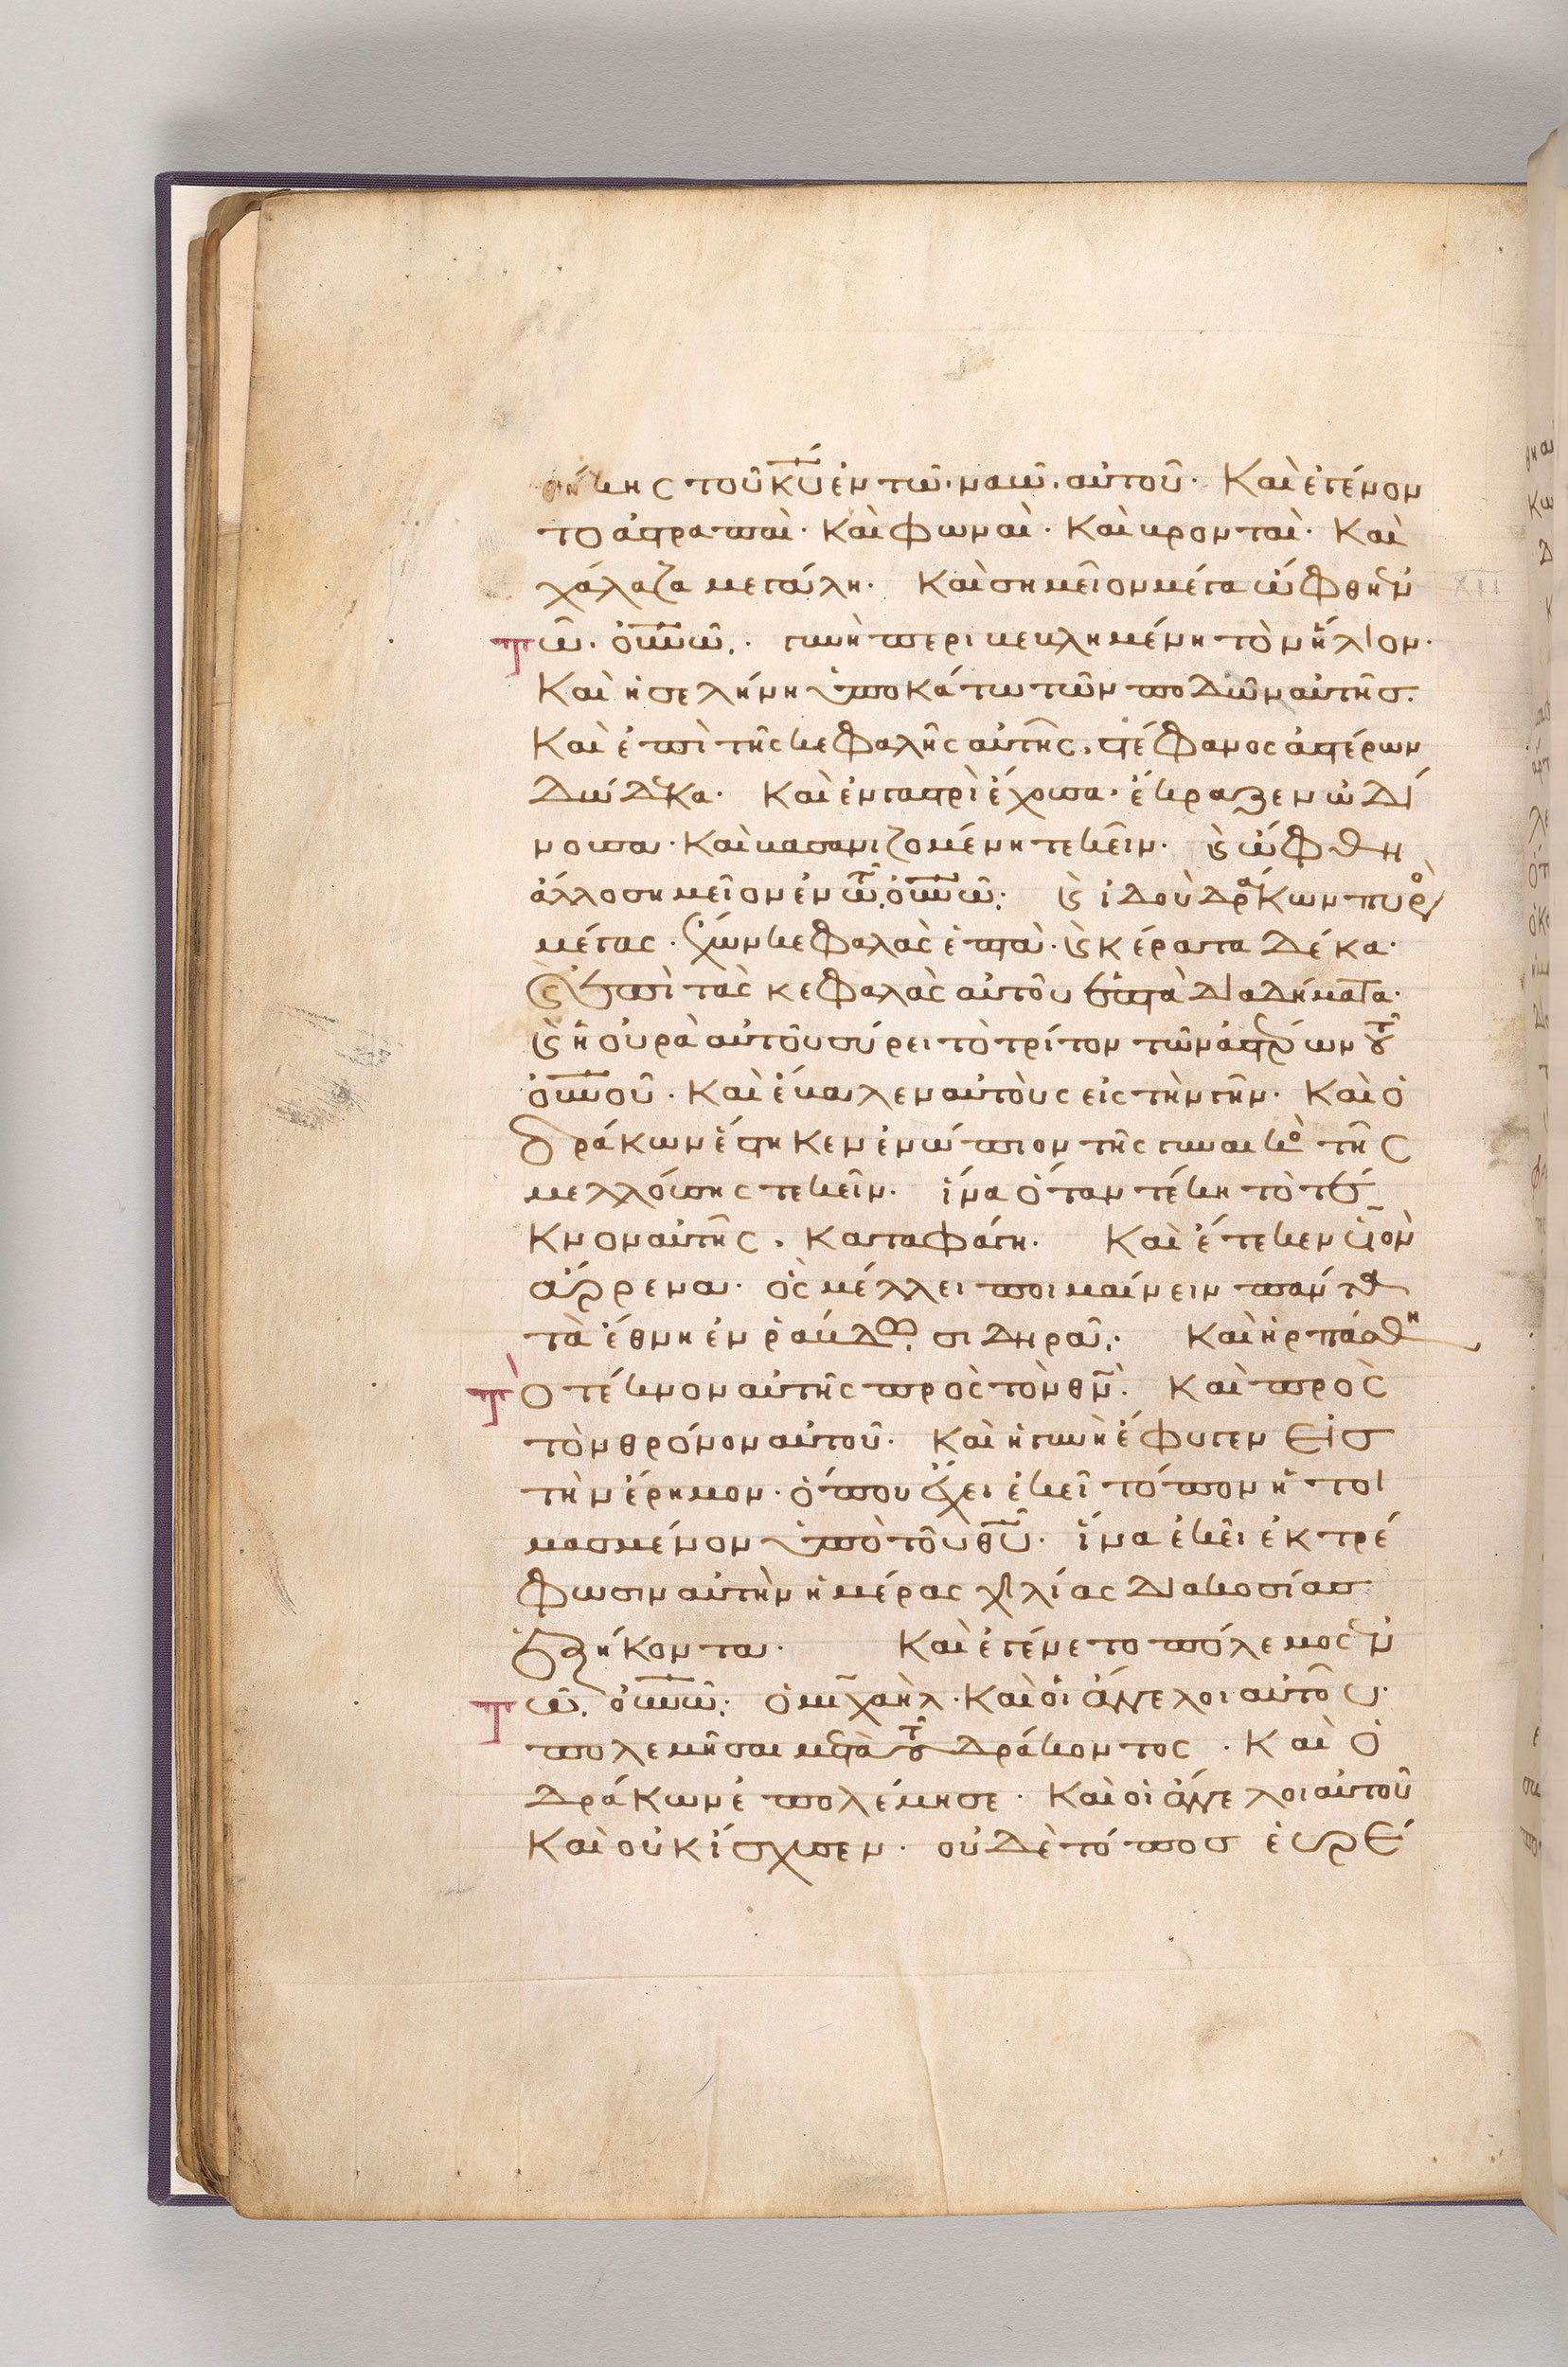 θήκης τοῦ κ̅υ̅ ἐν τῶ, ναῶ, αὐτοῦ· Καὶ ἐγένον
το ἀστραπαὶ· Καὶ φωναὶ· Καὶ κρονταὶ· Καὶ
χάλαζα μεγάλη· Καὶ σημεῖον μέγα ὤφθη ἐν
τῶ, ὀυ̅ν̅ῶ, γυνὴ περικεκλημένη τὸν ἥλιον·
Καὶ ἡ σελήνη ὑποκάτω τῶν ποδῶν αὐτῆσ·
Καὶ ἐπὶ τῆς κεφαλῆς αὐτῆς, στέφανος ἀστέρων
Δώδεκα· Καὶ ἐν γαστρὶ ἔχουσα· ἔκραξεν ὠδί
νουσα· Καὶ βασανιζομένη τεκεῖν· ϗ ὤφθη
ἄλλο σημεῖον ἐν τῶ, ὀυ̅ν̅ῶ, ϗ ἰδοὺ δράκων πυρὸ/
μέγας· ἔχων κεφαλὰς ἑπτὰ· ϗ κέρατα δέκα·
ϗ ἐπὶ τὰς κεφαλὰς αὐτοῦ ἑπτὰ διαδήματα·
ϗ ἡ οὐρὰ αὐτοῦ σύρει τὸ τρίτον τῶν ἀστέρων τȣ͂
ὀυ̅ν̅οῦ· Καὶ ἔβαλεν αὐτοὺς εἰς τὴν γῆν· Καὶ ὁ
δράκων ἕστηκεν ἐνώπιον τῆς γυναικὸ τῆς
μελλούσης τεκεῖν· ἵνα ὅταν τέκη τὸ τέ
Κνον αὐτῆς, Καταφάγη· Καὶ ἔτεκεν υἱὸν
ἄρρενα· ὃς μέλλει ποιμαίνειν πάντα
τὰ ἔθνη ἐν ῥάβδω, σιδηρᾶ,· Καὶ ἡρπάσθη
τὸ τέκνον αὐτῆς πρὸς τὸν θ̅ν̅· Καὶ πρὸς
τὸν θρόνον αὐτοῦ· Καὶ ἡ γυνὴ ἔφυγεν εἰσ
τὴν ἔρημον· ὅπου ἔχει ἐκεῖ τόπον ἡτοι
μασμένον ὑπὸ τοῦ θ̅υ̅· ἵνα ἐκεῖ ἐκτρέ
φωσιν αὐτὴν ἡμέρας χιλίας διακοσίασ
ἑξήκοντα· Καὶ ἐγένετο πόλεμος ἐν
τῶ, ὀυ̅ν̅ῶ, ὁ μιχαὴλ· Καὶ οἱ ἄγγελοι αὐτοῦ·
πολεμῆσαι μετὰ τȣ͂ δράκοντος· Καὶ ὁ
δράκων ἐπολέμησε· Καὶ οἱ ἄγγελοι αὐτοῦ
Καὶ οὐκ ἴσχυσεν· οὐδὲ τόποσ εὑρέ